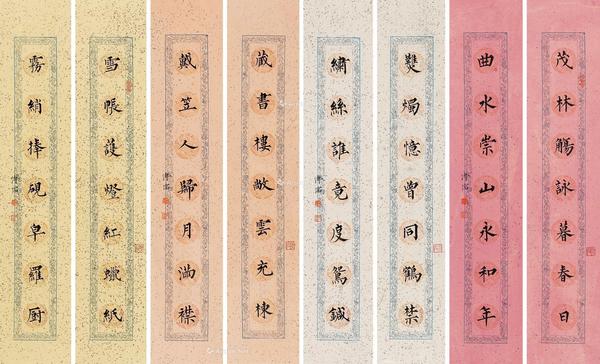 茂林觴詠暮春日
曲水崇山永和年
燭憶曾同鶴禁
繡絲誰竟度鴛鍼
藏書樓敞雲充棟
戴笠人歸月滿襟
雪帳護燈紅蠟紙
霧綃捧硯皁羅厨